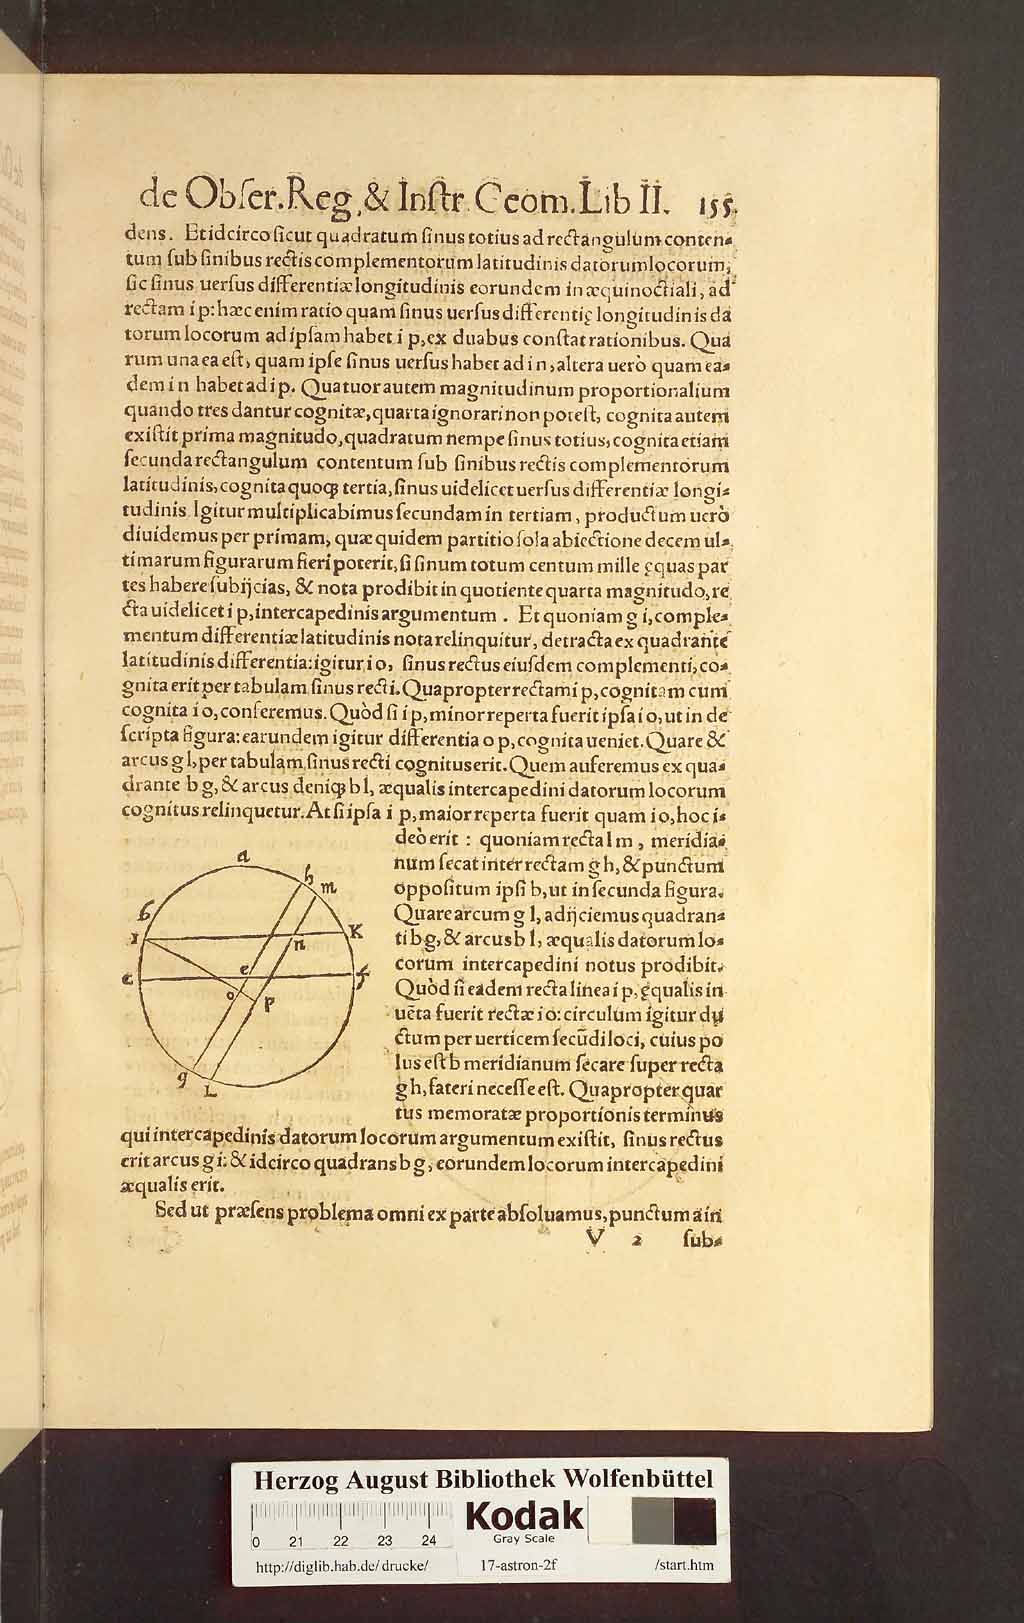 de Obſer. Reg. & Inſtr. Geom. Lib II. 155.
dens. Et idcirco ſicut quadratum ſinus totius ad rectangulum conten-
tum ſub ſinibus rectis complementorum latitudinis datorum locorum,
ſic ſinus uerſus differentiæ longitudinis eorundem in æquinoctiali, ad
rectam i p: hæc enim ratio quam ſinus uerſus differentię longitudinis da
torum locorum ad ipſam habet i p, ex duabus conſtat rationibus. Qua
rum una ea eſt, quam ipſe ſinus uerſus habet ad i n, altera uerò quam ea-
dem i n habet ad i p. Quatuor autem magnitudinum proportionalium
quando tres dantur cognitæ, quarta ignorari non poteſt, cognita autem
exiſtit prima magnitudo, quadratum nempe ſinus totius, cognita etiam
ſecunda rectangulum contentum ſub ſinibus rectis complementorum
latitudinis, cognita quoq; tertia, ſinus uidelicet uerſus differentiæ longi-
tudinis. Igitur multiplicabimus ſecundam in tertiam, productum uerò
diuidemus per primam, quæ quidem partitio ſola abiectione decem ul-
timarum figurarum fieri poterit, ſi ſinum totum centum mille ęquas par
tes habere ſubijcias, & nota prodibit in quotiente quarta magnitudo, re
cta uidelicet i p, intercapedinis argumentum. Et quoniam g i, comple-
mentum differentiæ latitudinis nota relinquitur, detracta ex quadrante
latitudinis differentia: igitur i o, ſinus rectus eiuſdem complementi, co-
gnita erit per tabulam ſinus recti. Quapropter rectam i p, cognitam cum
cognita i o, conferemus. Quòd ſi i p, minor reperta fuerit ipſa i o, ut in de
ſcripta figura: earundem igitur differentia o p, cognita ueniet. Quare &
arcus g l, per tabulam ſinus recti cognitus erit. Quem auferemus ex qua-
drante b g, & arcus deniq; b l, æqualis intercapedini datorum locorum
cognitus relinquetur. At ſi ipſa i p, maior reperta fuerit quam i o, hoc i-
deò erit : quoniam recta l m, meridia-
num ſecat inter rectam g h, & punctum
oppoſitum ipſi b, ut in ſecunda figura.
Quare arcum g l, adijciemus quadran-
ti b g, & arcus b l, æqualis datorum lo-
corum intercapedini notus prodibit.
Quòd ſi eadem recta linea i p, ęqualis in
uẽta fuerit rectæ i o: circulum igitur du
ctum per uerticem ſecũdi loci, cuius po
lus eſt b meridianum ſecare ſuper recta
g h, fateri neceſſe eſt. Quapropter quar
tus memoratæ proportionis terminus
a
h
m
b
I
K
n
e
c
f
o
p
g
L
qui intercapedinis datorum locorum argumentum exiſtit, ſinus rectus
erit arcus g i: & idcirco quadrans b g, eorundem locorum intercapedini
æqualis erit.
Sed ut præſens problema omni ex parte abſoluamus, punctum a in
V 2 ſub-
Herzog August Bibliothek Wolfenbüttel
0 21 22 23 24
Kodak
Gray Scale
http://diglib.hab.de/drucke/ 17-astron-2f /start.htm